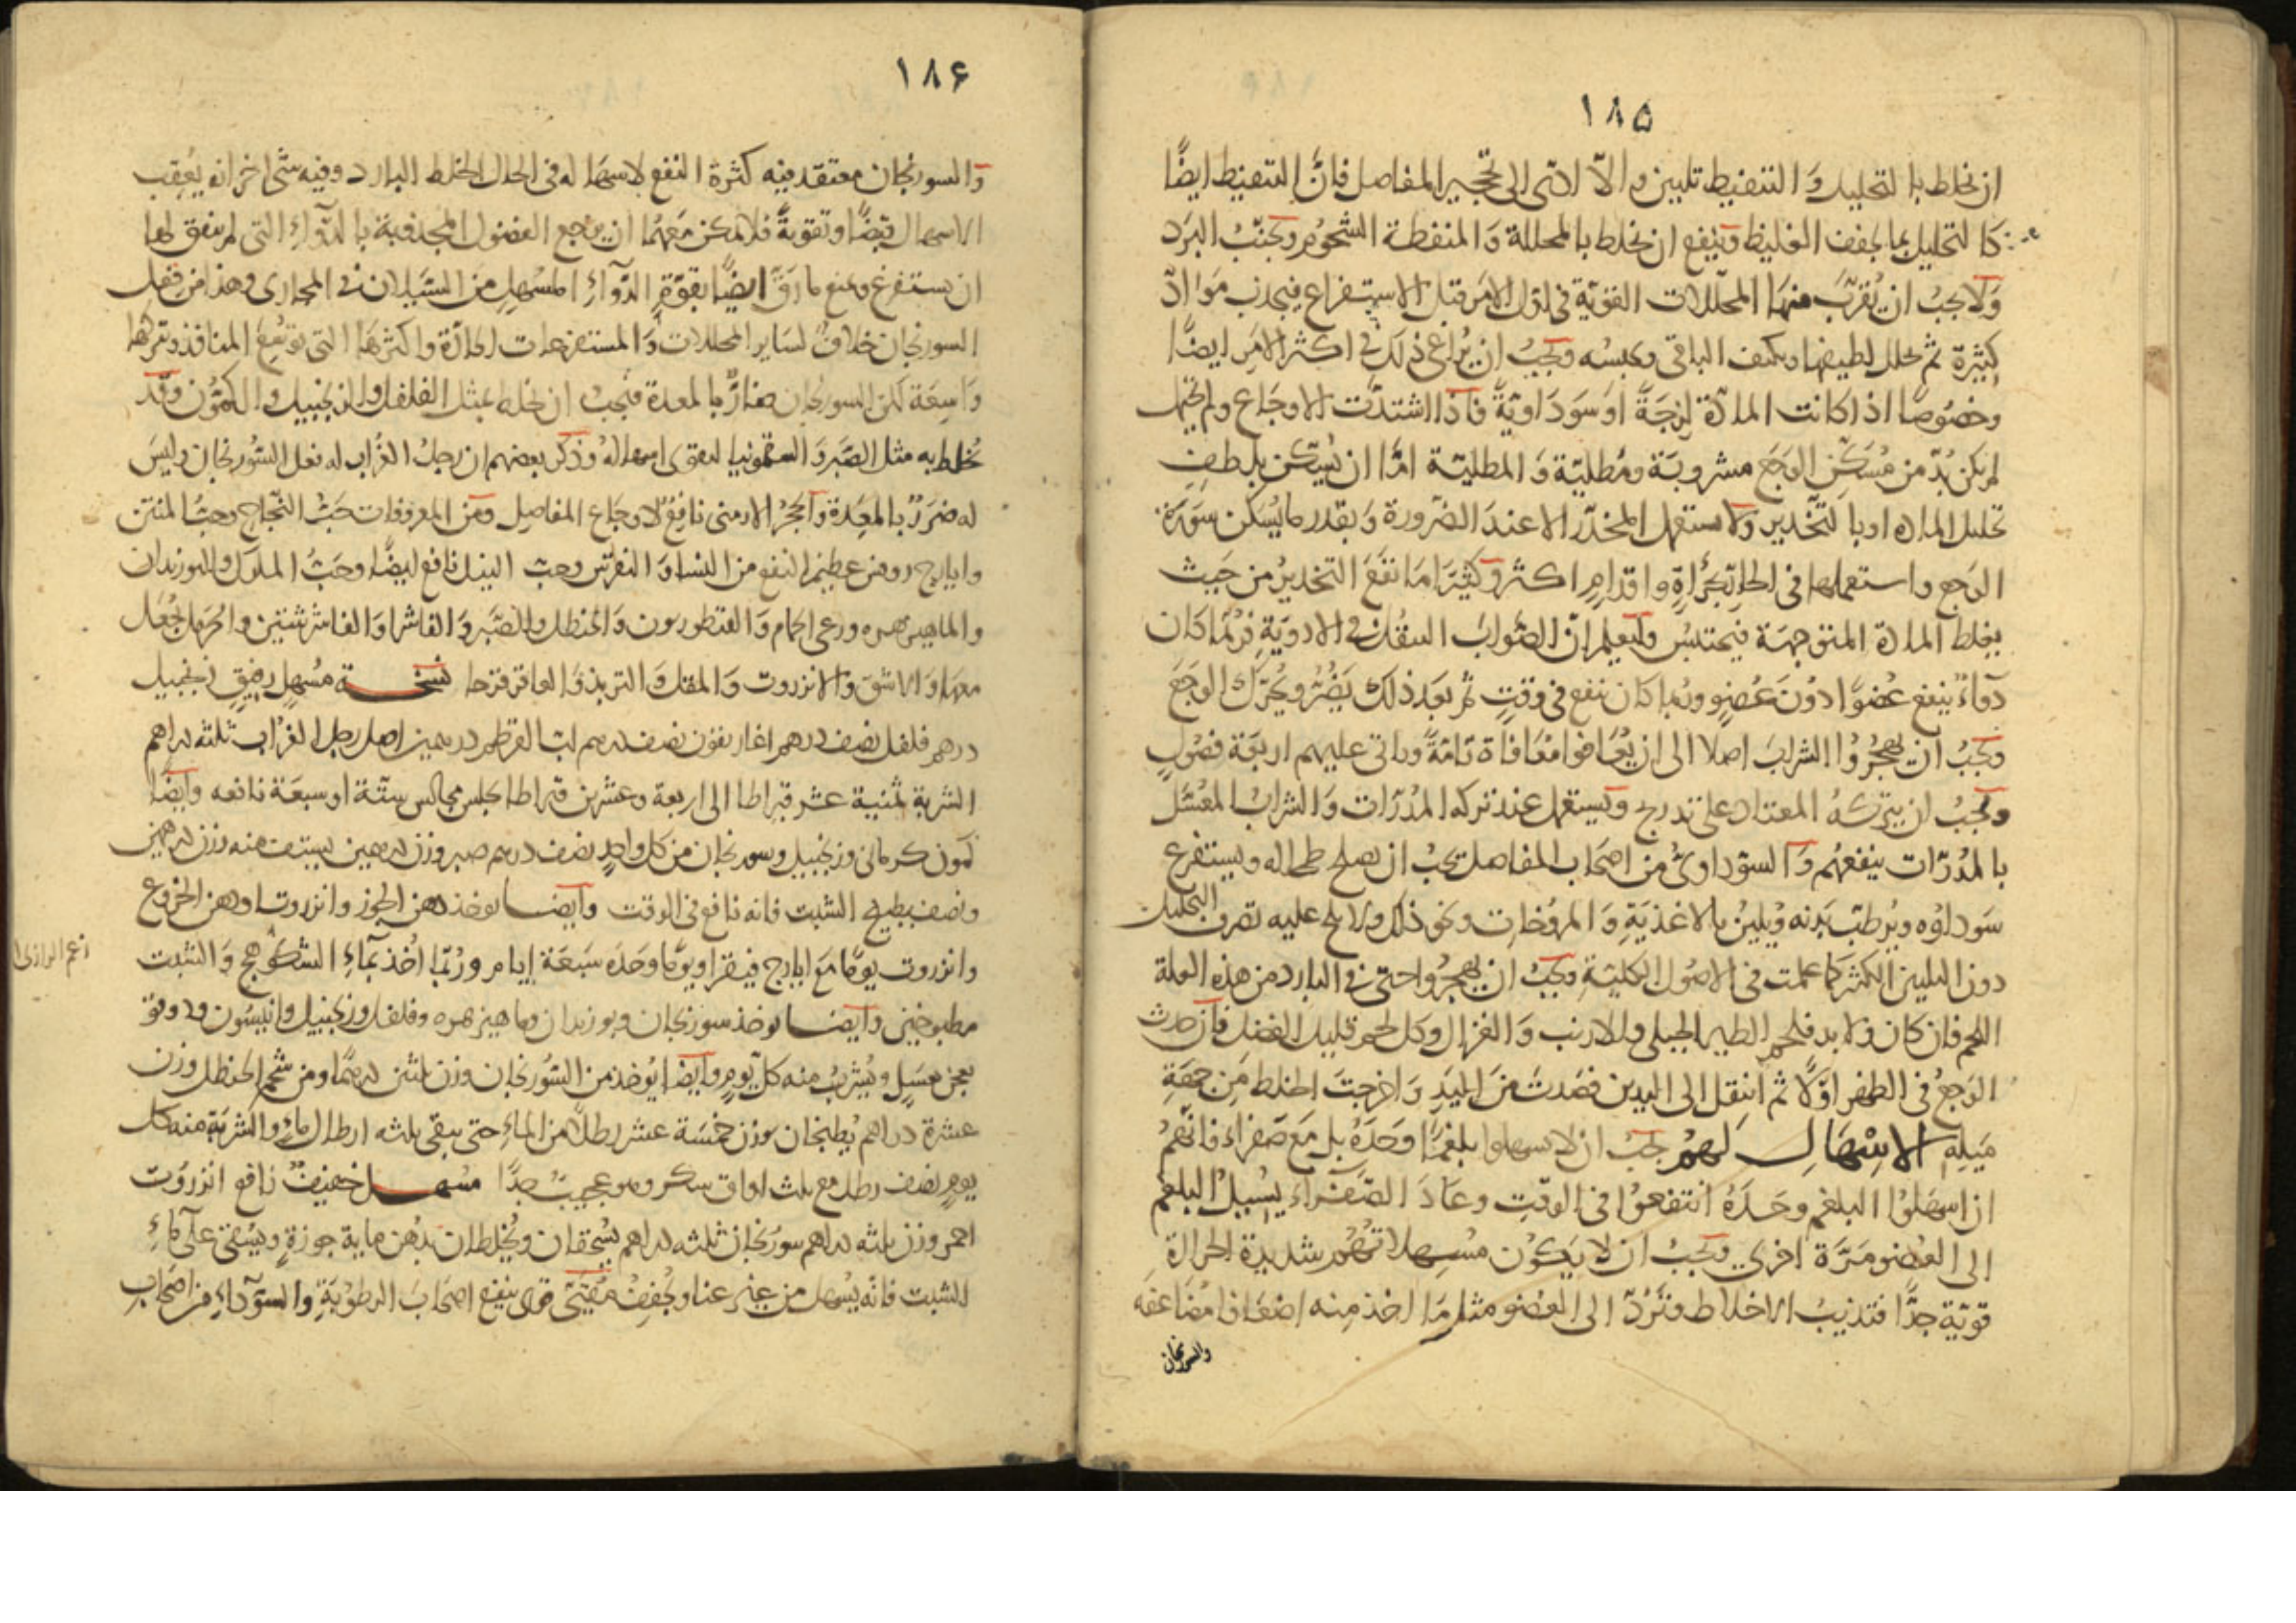 ١٨٥
ان يخلط بالتحليل والتنفيط تليين والا ادّى الى تحجير المفاصل فانّ التنفيط ايضًا
كالتحليل بما يجفف الغليظ وينفع ان يخلط بالمحللة والمنفطة الشحوم ويجنّب البرد
ولا يجب ان يُقرّب منها المحلّلات القويّة فى اول الامر قبل الاستفراغ فيجذب موادّ
كثيرة ثم يحلل لطيفها ويكثف الباقى ويحبسه ويجب ان يُراعى ذلك فى اكثر الامر ايضًا
وخصوصًا اذا كانت المادّة لزجةً او سوداويّةً فاذا اشتدّت الاوجاع ولم تحتمل
لم يكن بُدّ من مُسكّن الوجع مشروبة ومطليّة والمطليّة امّا ان يُسكّن بلطف
تحليل الماده او بالتّخدير ولا يستعمل المخدّر الا عند الضّرورة وبقدر ما يُسكن سَورة
الوجع واستعمالها فى الحارّ بجُرأةٍ واقدامٍ اكثر وكثيرًا ما نفع التخدير من حيث
يغلظ المادة المتوجهة فيحتبس وليعلم انّ الصّواب التنقّل فى الادوية فربّما كان
دواءٌ ينفع عُضوًا دون عضوٍ وربما كان ينفع فى وقتٍ ثم بعد ذلك يضرّ ويُحرّك الوجع
ويجب ان يهجُرُوا الشراب اصلا الى ان يُعافوا مُعافاة تامّةً وياتى عليهم اربعة فصولٍ
ويجب ان يتركهُ المعتاد على تدرج ويستعمل عند تركه المُدرّات والشراب المعسّل
بالمُدرّات ينفعهم والسّوداوىّ من اصحاب المفاصل يجب ان يصلح طحاله ويستفرغ
سوداؤه ويُرطّب بدنه ويُليّن بالاغذية والمروخات ونحو ذلك ولا يلح عليه تصرف التحليل
دون التليين الكثير كما علمت فى الاصول الكليّة ويجب ان يهجُروا حتّى فى البارد من هذه العلة
اللحم فان كان ولا بد فلحم الطير الجبلى والارنب والغزال وكل لحم قليل الفضل فان حدث
الوجع فى الظهر اوّلًا ثم انتقل الى اليدين فصدتَ من اليد واخرجتَ الخلط من جهة
ميله الاسْهَالِ لهمْ يجب ان لا يسهلوا بلغمًا وحدهُ بل مع صفراء فانّهم
ان اسهلوا البلغم وحدهُ انتفعوا فى الوقت وعاد الصّفراء يُسيل البلغم
الى العضو مرّة اخرى ويجب ان لا يكون مُسهلاتهم شديدة الحرارة
قويّة جدًّا فتذيب الاخلاط وتردّ الى العضو مثل ما اخذ منه اضعافا مضاعفة
والسورنجان
١٨۶
والسورنجان معتقد فيه كثرة النفع لاسهاله فى الحال الخلط البارد وفيه شئ اخر انه يُعقب
الاسهال قبضًا وتقويةً فلا يمكن معهما ان يراجع الفضول المجذوبة بالدواء التى لم يتفق لها
ان يستفرغ ويمنع ما رقّ ايضًا بقوّة الدّواء المُسهل من السّيلان فى المجارى وهذا من فعل
السورنجان خلافٌ لسائر المحللات والمستفرغات الحارّة واكثرها التى توسّع المنافذ وتتركها
واسعة لكن السورنجان ضارٌّ بالمعدة فيجب ان يخلط بمثل الفلفل والزنجبيل والكمّون وقد
يُخلط به مثل الصّبر والسقمونيا ليقوى اسهاله وذكر بعضهم ان رجل الغُراب له فعل السّورنجان وليس
له ضررٌ بالمعدة والحجر الارمنى نافعٌ لاوجاع المفاصل ومن المعروفات حبّ النّجاح وحبّ المنتن
وايارج روفس عظيم النفع من النسا والنقرس وحبّ النيل نافع ايضًا وحبّ الملوك والبوزيدان
والماهيزهره ورعى الحمام والقنطوريون والحنظل والصّبر والفاشرا والفاشرشتين والحرمل يُجعل
معها والاشق والانزروت والمقل والتربذ والعاقرقرحا نسخة مُسهلٍ رفيقٍ زنجبيل
درهم فلفل نصف درهم اغاريقون نصف درهم لبّ القرطم درهمين اصل رجل الغراب ثلثه دراهم
الشربة ثمنية عشر قيراطا الى اربعة وعشرين قيراطا يجلس مجالس ستّة او سبعة نافعه وايضًا
كمون كرمانى وزنجبيل وسورنجان من كل واحدٍ نصف درهم صبر وزن درهمين يستف منه وزن درهمين
ونصف بطبيخ الشبت فانه نافع فى الوقت وايضا يوخذ دهن الجوز وانزروت او دهن الخروع
وانزروت يومًا مع ايارج فيقرا ويومًا وحده سبعة ايام وربّما اُخذ بماء الشكوهج والشبت
زعم الرازى
مطبوخين وايضا يوخذ سورنجان وبوزيدان وماهيزهره وفلفل وزنجبيل وانيسون ودوقو
يعجن بعسلٍ ويُشرب منه كل يومٍ وايضًا يُوخذ من السّورنجان وزن ثلثين درهمًا ومن شحم الحنظل وزن
عشرة دراهم يُطبخان بوزن خمسة عشر رطلًا من الماء حتى يبقى ثلثه ارطال ماء والشربة منه كل
يوم نصف رطل مع ثلث اواق سكر وهو عجيبٌ جدًّا مسهل خفيفٌ نافع انزروت
احمر وزن ثلثه دراهم سورنجان ثلثه دراهم يُسحقان ويُخلطان بدُهن ماية جوزةٍ ويُسقى على ماء
الشبت فانّه يُسهل من غير عنا ويُخفف مُقيّئ قوى ينفع اصحاب الرطوبة والسّوداء من اصحاب